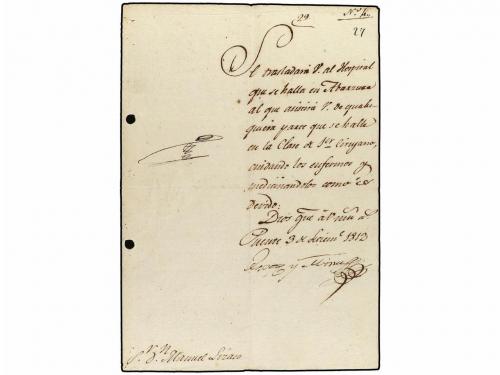 29
27
Se trasladará V. al Hospital
que se halla en Abarzuza
al que asistirá V. de qual-
quiera parte que se halle
en la Clase de 1er Cirujano,
cuidando los enfermos y
medicinandolos como es
devido.
Dios gue á V. ms. a.
Puente 3 de 1812
Espoz y Mina
Sr. Dn. Manuel